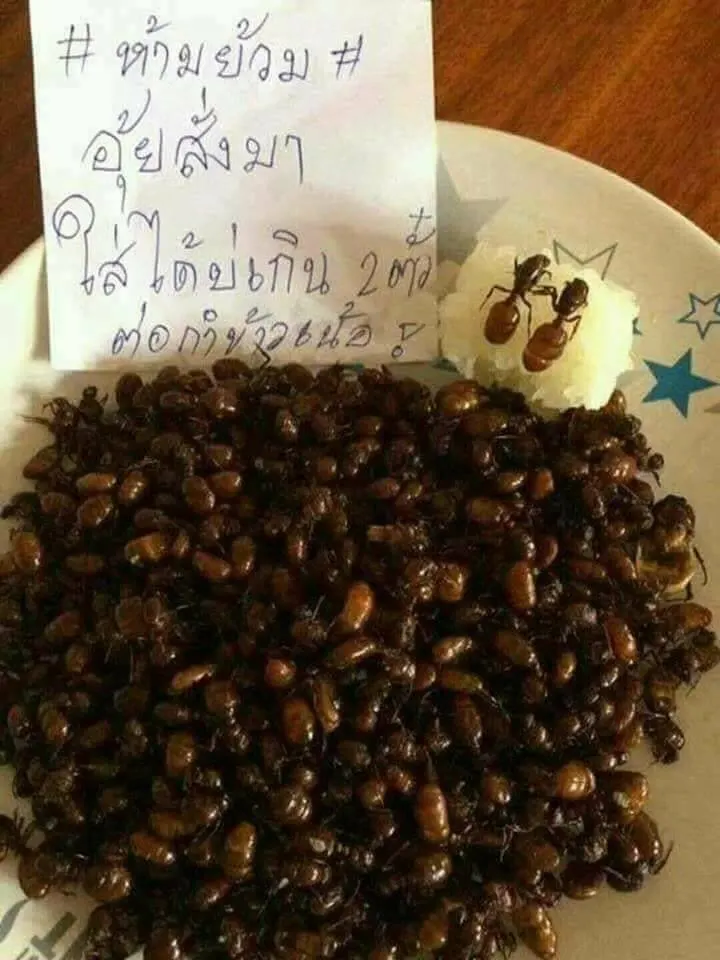 # ห้ามย้วม #
อุ้ยสั่งมา
ใส่ได้บ่เกิน 2 ตั๋ว
ต่อกำข้าวเน้อ !